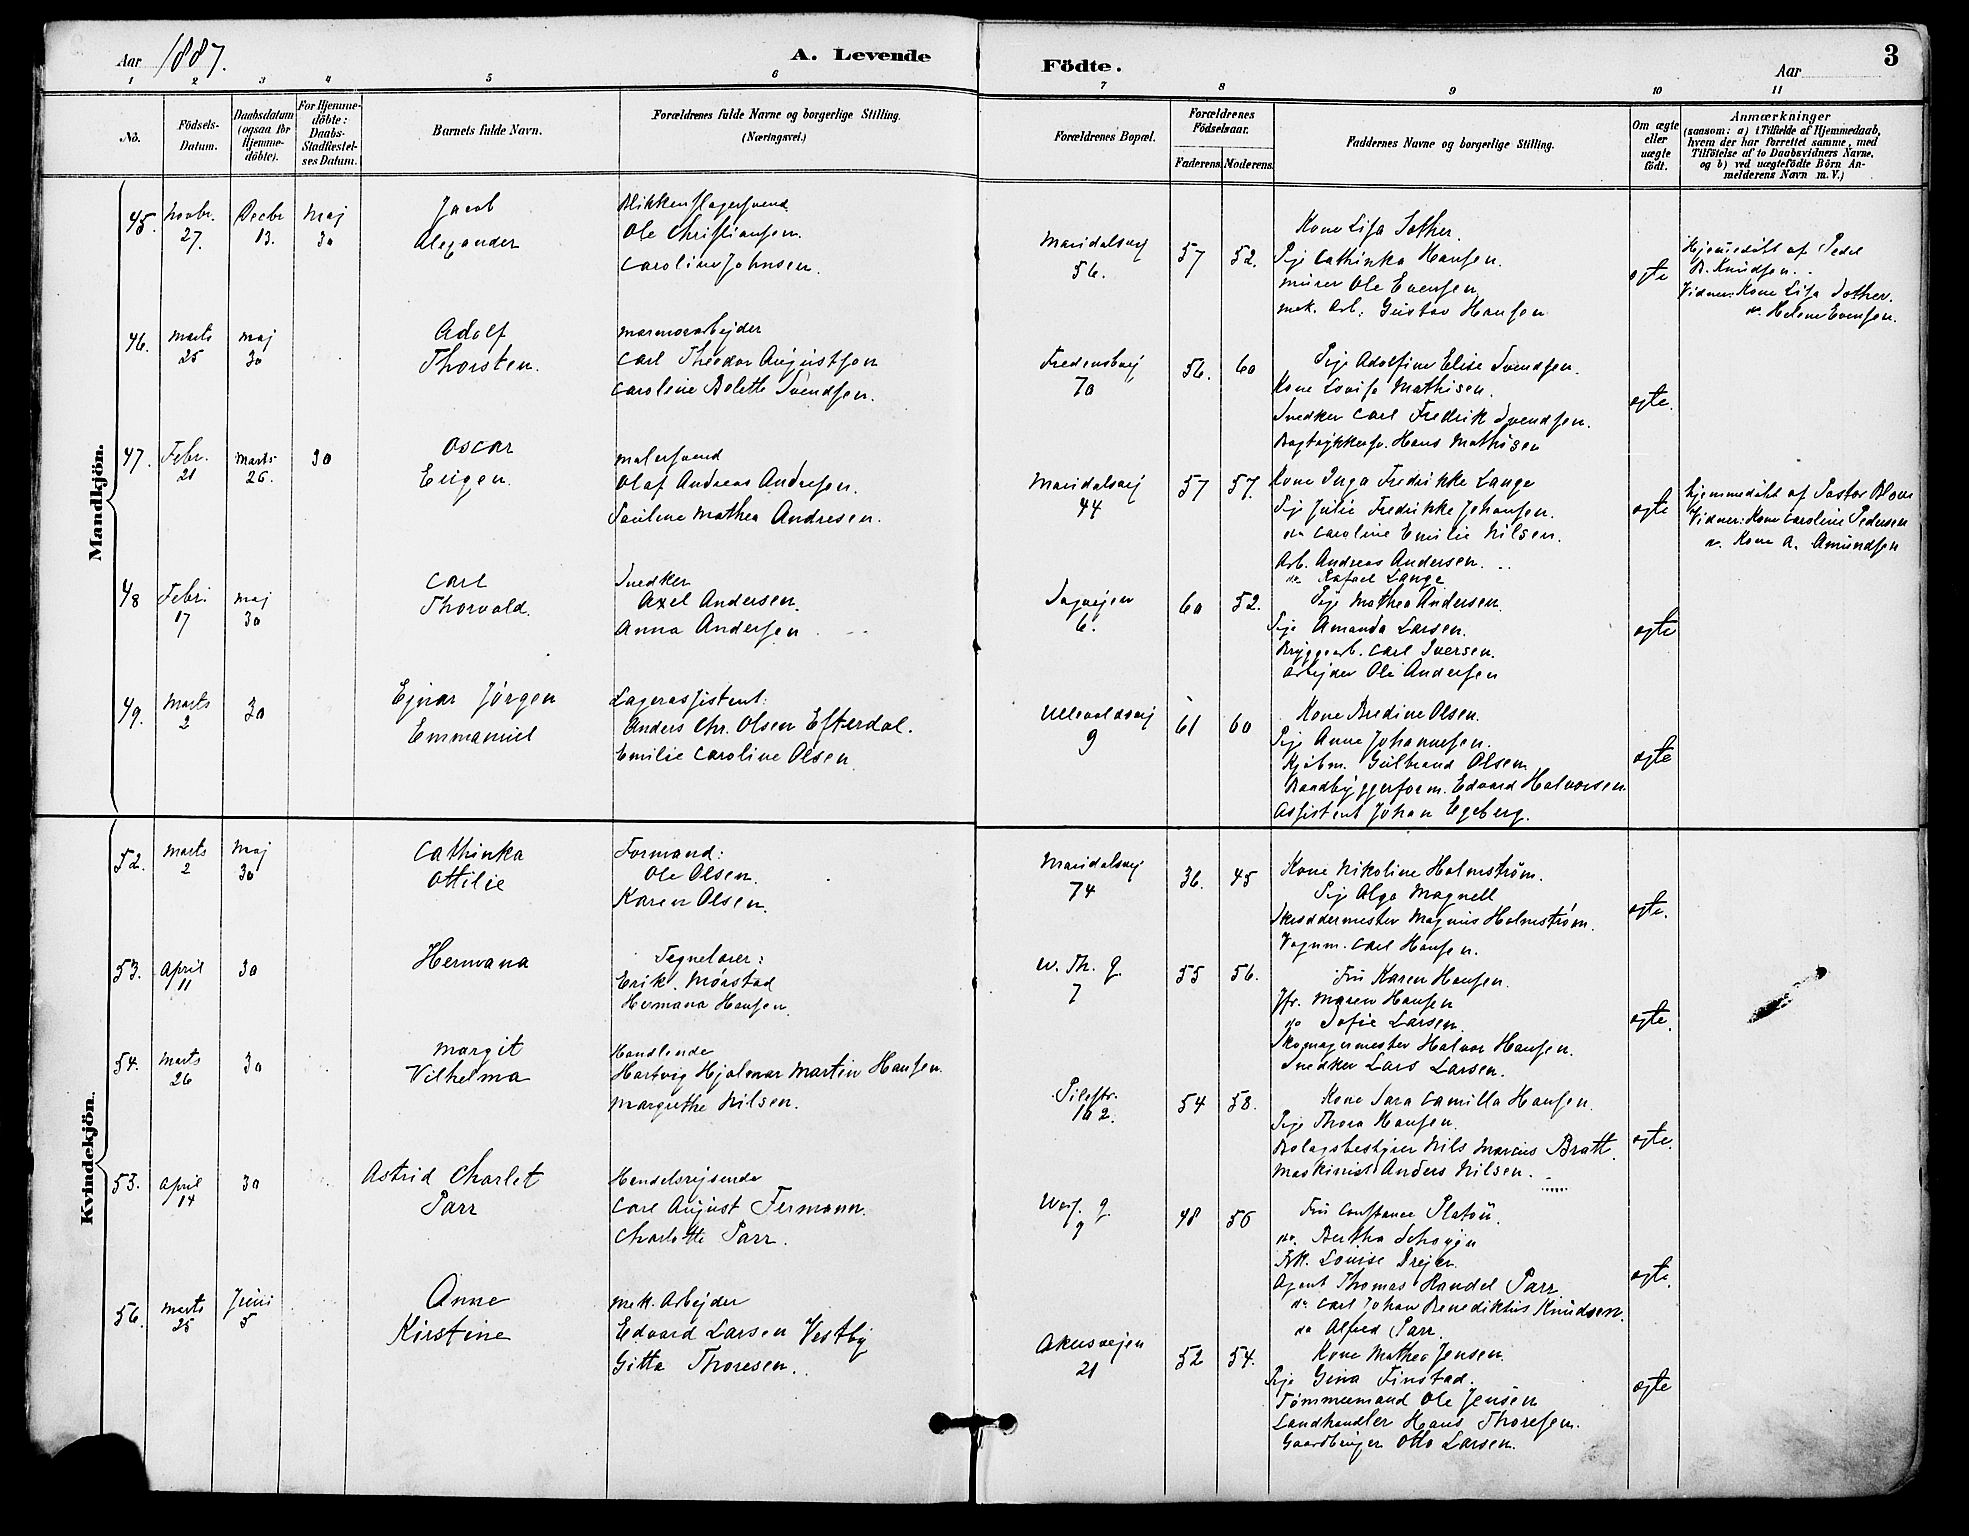 Aar 1887.
A. Levende
Födte.
Aar
3
1 2 3 4 5 6 7 8 9 10 11
No.
Födsels-
Datum.
Daabsdatum
(ogsaa for
Hjemme-
döbte).
For Hjemme-
döbte:
Daabs-
Stadfæstel-
ses Datum.
Barnets fulde Navn.
Forældrenes fulde Navne og borgerlige Stilling.
(Næringsvei.)
Forældrenes Bopæl.
Forældrenes
Födselsaar.
Faderens. Moderens.
Faddernes Navne og borgerlige Stilling.
Om ægte
eller
uægte
födt.
Anmærkninger
(saasom: a) i Tilfælde af Hjemmedaab,
hvem der har forrettet samme, med
Tilföielse af to Daabsvidners Navne,
og b) ved uægtefödte Börn An-
melderens Navn m. V.)
Mandkjön.
45. Novbr. 27. Decbr 13. Maj 30
Jacob
Alexander
Blikkenslagersvend
Ole Christiansen.
Caroline Johnsen.
Maridalsvej
56.
57 52.
Kone Lisa Sother.
Pige Cathinka Hansen.
Murer Ole Evensen
Mek. Arb. Gustav Hansen
ægte
Hjemmedöbt af Pedel
B. Knudsen.
Vidner: Kone Lisa Sother.
do. Helene Evensen.
46. Marts 25 Maj 30
Adolf
Thorsten.
Marmorarbejder
Carl Theodor Augustson
Caroline Bolette Svendsen.
Fredensborj
70
56. 60
Pige Adolfine Elise Svendsen.
Kone Lovise Mathisen.
Snedker Carl Fredrik Svendsen.
Bogtrykkersv. Hans Mathisen
ægte.
47. Febr. 21 Marts 26. 30
Oscar
Eugen.
Malersvend
Olaf Andreas Andresen.
Pauline Mathea Andresen.
Maridalsvej
44
57 57.
Kone Inga Fredrikke Lange
Pige Julie Fredrikke Johansen.
do Caroline Emilie Nilsen.
Arb. Andreas Andersen.
do Rafael Lange
ægte
Hjemmedöbt af Pastor Blom
Vidner: Kone Caroline Pedersen
do. Kone A. Amundsen
48 Febr. 17 Maj 30
Carl
Thorvald.
Snedker
Axel Andersen.
Anna Andersen
Sagvejen
6.
60 52.
Pige Mathea Andersen.
Pige Amanda Larsen.
Bryggearb. Carl Iversen.
Arbejder Ole Andersen
ægte
49. Marts 2 30
Ejnar Jörgen
Emmanuel
Lagerassistent:
Anders Chr. Olsen Efterdal.
Emilie Caroline Olsen.
Ullevoldsvej
9
61 60
Kone Bredine Olsen.
Pige Anne Johannesen.
Kjöbm. Gulbrand Olsen
Baadbyggerform. Edvard Halvorsen
Assistent Johan Egeberg.
ægte
Kvindekjön.
52. Marts 2 Maj 30
Cathinka
Ottilie
Formand:
Ole Olsen.
Karen Olsen.
Maridalsvej
74
36. 45
Kone Nikoline Holmström.
Pige Olga Magnell
Skræddermester Magnus Holmström.
Vognm. Carl Hansen.
ægte.
53. April 11 30
Hermana
Tegnelærer:
Erik. Mørstad
Hermana Hansen.
W. Th. g.
7
55 56.
Fru Karen Hansen.
Jfr. Maren Hansen
do Sofie Larsen.
Skomagermester Halvor Hansen.
Snedker Lars Larsen.
ægte.
54. Marts 26 30
Margit
Vilhelma
Handlende
Hartvig Hjalmar Martin Hansen.
Margrethe Nilsen.
Pilestr.
102.
54 58.
Kone Sara Camilla Hansen.
Pige Thora Hansen.
Bolagsbestyrer Nils Marcus Bratt.
Maskinist Anders Nilsen.
ægte.
53. April 14 30
Astrid Charlet
Parr
Handelsrejsende
Carl August Fermann.
Charlotte Parr.
Wesf. g.
9
48 56
Fru Constance Platou.
do. Bertha Schøyen
Frk. Louise Drejer.
Agent Thomas Handel Parr
do Carl Johan Benediktus Knudsen.
do Alfred Parr.
ægte.
56. Marts 25 Juni 5
Anne
Kirstine
Mek. Arbejder
Edvard Larsen Vestby
Gitta Thoresen.
Akersvejen
21
52 54.
Kone Mathea Jensen.
Pige Gina Finstad.
Tømmermand Ole Jensen
Landhandler Hans Thoresen.
Gaardbruger Otto Larsen.
ægte